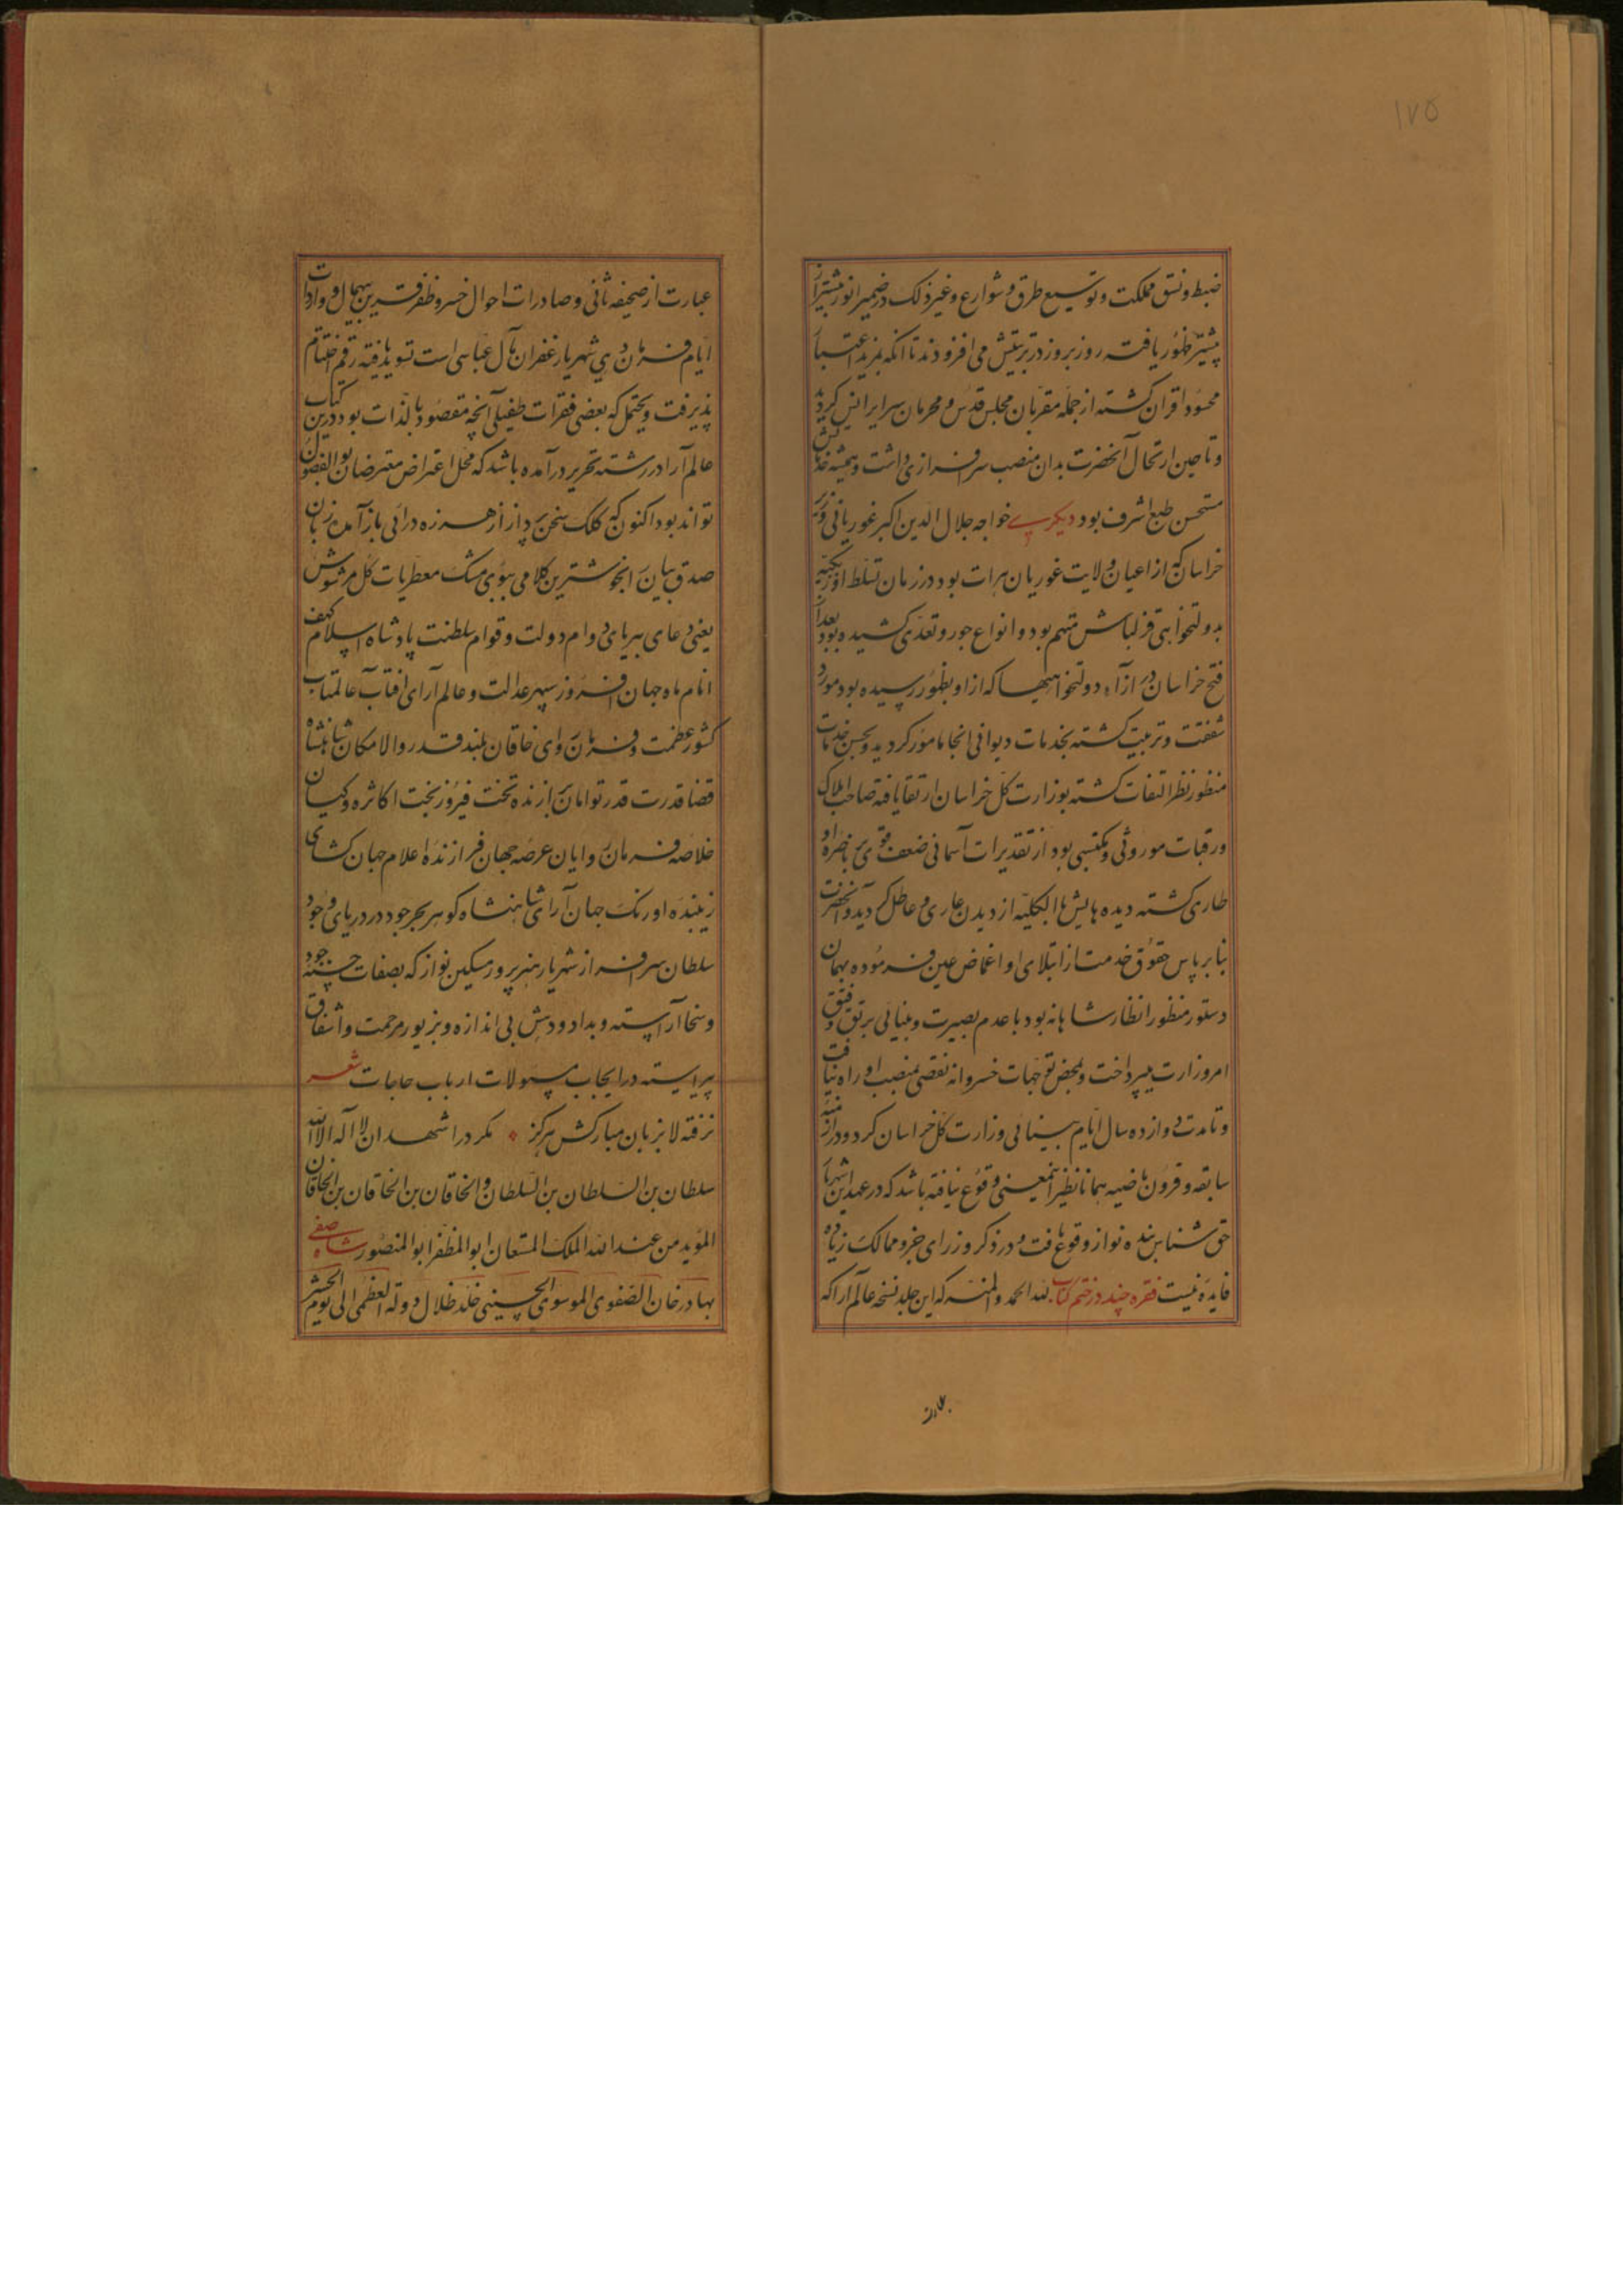 ۱۷۵
ضبط و نسق مملکت و توسیع طرق و شوارع و غیر ذلک در ضمیر انور بیشتر از
پیشتر ظهور یافته روز بروز در تربیتش می افزودند تا انکه بمزید اعتبار
محسود اقران کشته از جمله مقربان مجلس قدس و محرمان سرایر انس کردید
و تا حین ارتحال آنحضرت بدان منصب سرافرازی داشت و همیشه خدماتش
مستحسن طبع اشرف بود دیکری خواجه جلال الدین اکبر غوریانی وزیر
خراسان که از اعیان ولایت غوریان هرات بود در زمان تسلط اوزبکیه
بدولتخواهی قزلباش متهم بود و انواع جور و تعدی کشیده بود بعد از
فتح خراسان در ازاء دولتخواهیها که از او بظهور رسیده بود مورد
شفقت و تربیت کشته بخدمات دیوانی انجا مامور کردید و بحسن خدمات
منظور نظر التفات کشته بوزارت کل خراسان ارتقا یافته صاحب املاک
و رقبات موروثی و مکتسبی بود از تقدیرات آسمانی ضعف قوی بر باصره او
طاری کشته دیده هایش بالکلیه از دیدن عاری و عاطل کردید و آنحضرت
بنابر پاس حقوق خدمت از ابتلای او اغماض عین فرموده بهمان
دستور منظور انظار شاهانه بود با عدم بصیرت و بینائی برتق و فتق
امر وزارت میپرداخت و بمحض توجهات خسروانه نقصی بمنصب او راه نیافت
و تا مدت دوازده سال ایام بینائی وزارت کل خراسان کرد و در ازمنه
سابقه و قرون ماضیه همانا نظیر اینمعنی وقوع نیافته باشد که در عهد این شهریار
حق شناس بنده نواز وقوع یافت و در ذکر وزرای جزو ممالک زیاده
فایده نیست فقره چند در ختم کتاب لله الحمد والمنه که این جلد نسخه عالم آرا که
عبارت از صحیفه ثانی و صادرات احوال خسرو ظفر قرین بیهمال و واردات
ایام فرمان دهی شهریار غفران مآل عباسی است تسوید یافته رقم اختتام
پذیرفت و یحتمل که بعضی فقرات طفیلی آنچه مقصود بالذات بود درین کتاب
عالم آرا در رشته تحریر درآمده باشد که محل اعتراض معترضان بوالفضول
تواند بود اکنون که کلک سخن پرداز از هرزه درائی باز آمده زبان
صدق بیان بخوشترین کلامی ببوی مشک معطر یات کل مشوش
یعنی دعای بیریای دوام دولت و قوام سلطنت پادشاه اسلام کهف
انام ماه جهان افروز سپهر عدالت و عالم آرای افتاب عالمتاب
کشور عظمت و فرمان روای خاقان بلند قدر والا مکان شاهنشاه
قضا قدرت قدر توامان برازنده تخت فیروز بخت اکاثره و کیان
خلاصه فرمان روایان عرصه جهان فرازنده اعلام جهان کشای
زیبنده اورنک جهان آرای شاهنشاه کوهر بحر جود در دریای وجود
سلطان سرافراز شهریار هنرپرور مسکین نواز که بصفات حسنه جود
و سخا آراسته و بداد و دهش بی اندازه و بزیور مرحمت و اشفاق
پیراسته در ایجاب مسولات ارباب حاجات شعر
نرفته لا بزبان مبارکش هرکز * مکر در اشهد ان لا اله الا الله
سلطان بن السلطان بن السلطان والخاقان بن الخاقان بن الخاقان
الموید من عند الله الملک المستعان ابو المظفر ابو المنصور شاه صفی
بهادر خان الصفوی الموسوی الحسینی خلد ظلال دولته العظمی الی یوم الحشر